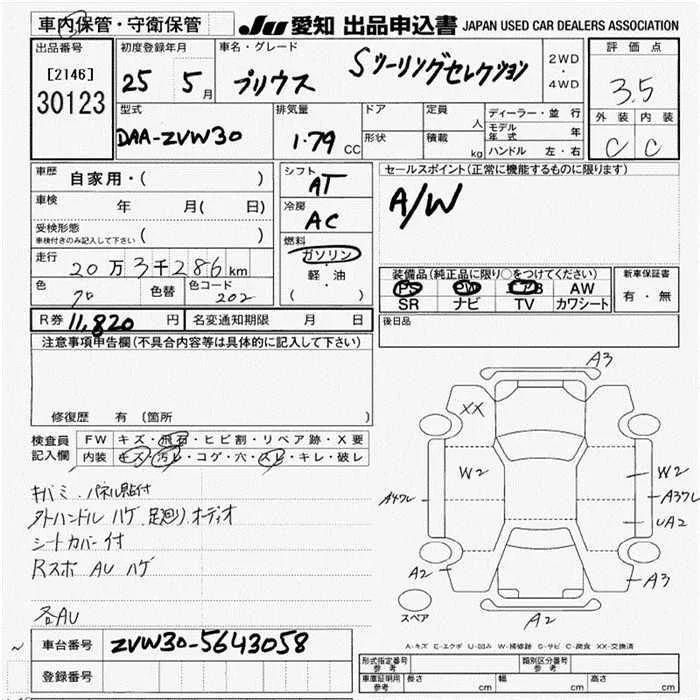 車内保管・守衛保管 JU 愛知 出品申込書 JAPAN USED CAR DEALERS ASSOCIATION
出品番号 [2146] 30123
初度登録年月 25 5月
車名・グレード プリウス Sツーリングセレクション
2WD・4WD
評価点 3.5
外装 内装
C C
型式 DAA-ZVW30
排気量 1.79 CC
ドア 形状
定員 人
積載 kg
ディーラー・並行
モデル年式 年
ハンドル 左・右
車歴 自家用・( )
車検 年 月( 日)
受検形態 ( )
車検付きのみ記入して下さい
走行 20万3千286km
色 クロ 色替 色コード 202
シフト AT
冷房 AC
燃料 ガソリン・軽・油 ( )
セールスポイント(正常に機能するものに限ります)
A/W
装備品(純正品に限り○をつけてください)
PS PW エアB AW
SR ナビ TV カワシート
新車保証書 有・無
R券 11,820円 名変通知期限 月 日
後日品
注意事項申告欄(不具合内容等は具体的に記入して下さい)
修復歴 有 〔箇所
検査員記入欄
FW キズ・飛石・ヒビ割・リペア跡・X要
内装 キズ・汚レ・コゲ・穴・スレ・キレ・破レ
キバミ・パネル貼付
外ハンドルハゲ.足廻り.オーディオ
シートカバー付
Rスポ AU ハゲ
各AU
A3
XX
W2 W2
A4ワレ A3ワレ
UA2
A2 A3
A2
スペア
A-キズ E-エクボ U-凹み W-補修跡 S-サビ C-腐食 XX-交換済
～ 車台番号 ZVW30-5643058
登録番号
形式指定番号 参考 類別区分番号 参考
車庫証明用 参考 長さ cm 幅 cm 高さ cm